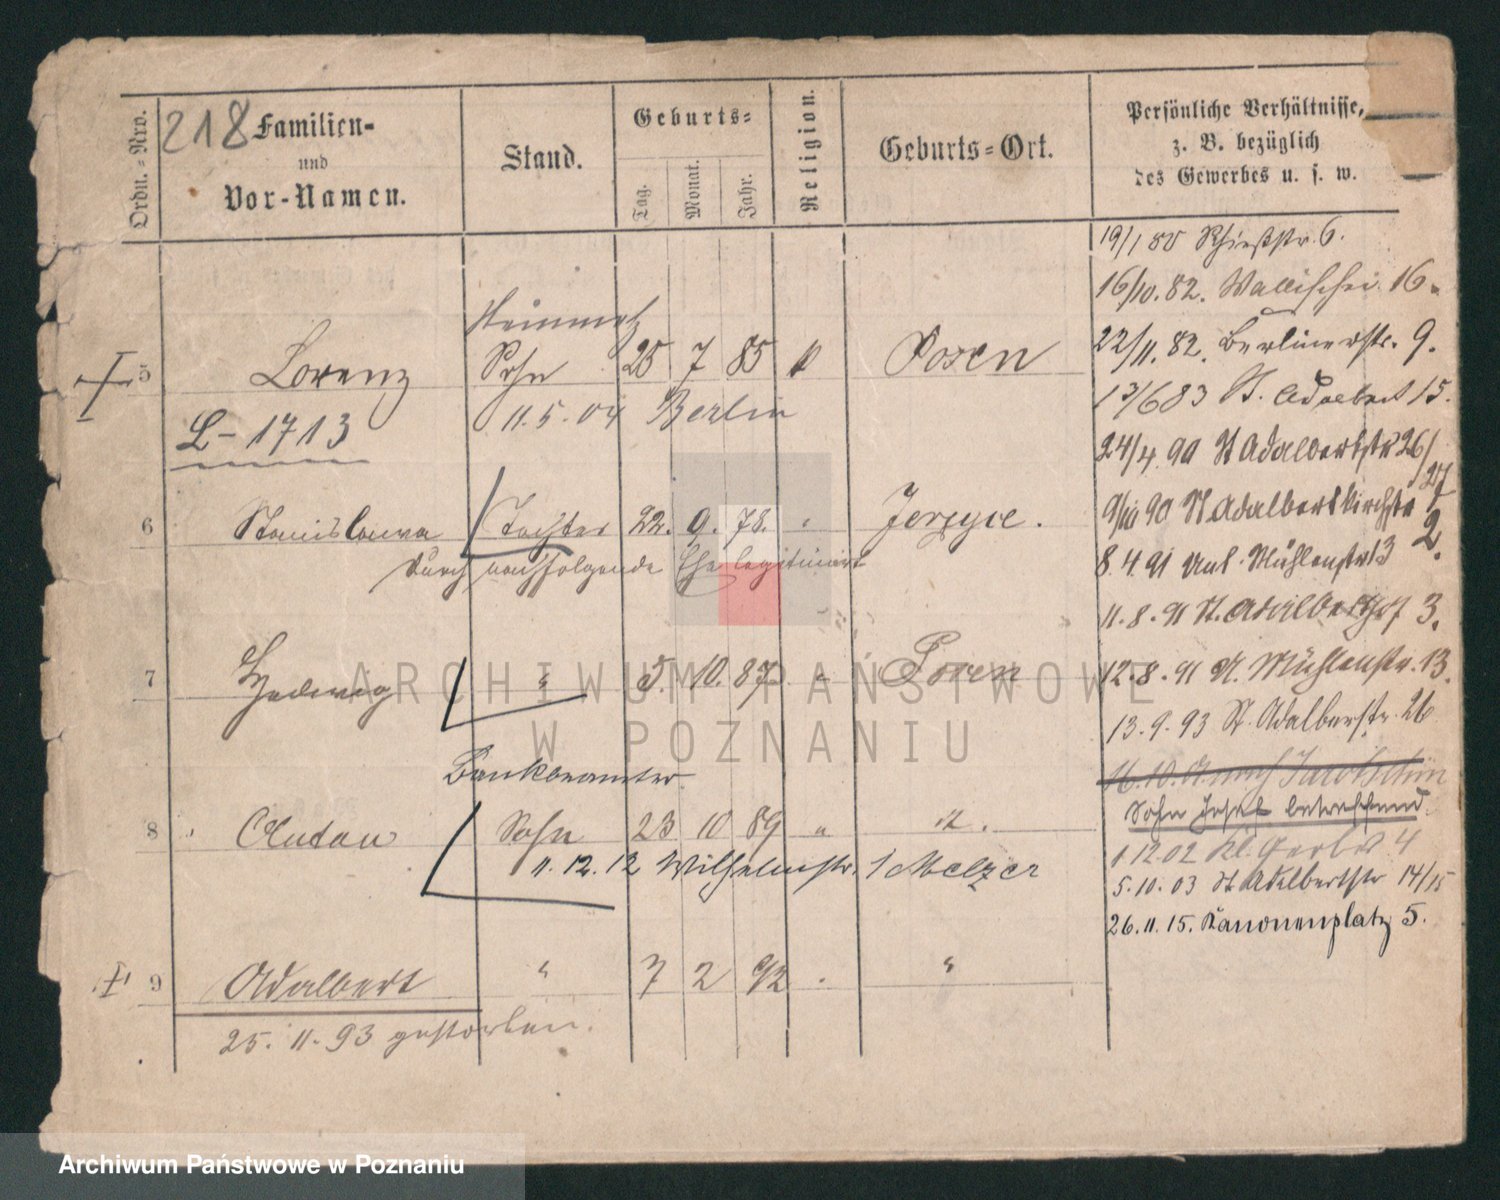 218
Ordn.-Nro.
Familien-
und
Vor-Namen.
Stand.
Geburts-
Tag.
Monat.
Jahr.
Religion.
Geburts-Ort.
Persönliche Verhältnisse,
z. B. bezüglich
des Gewerbes u. s. w.
19/1 80 Schießstr. 6.
16/10. 82. Wallischei 16.
22/11. 82. Berlinerstr. 9.
13/6 83 St. Adalbert 15.
24/4. 90 St Adalbertstr 26/27
9/10 90 St Adalbertkirchstr 2.
8. 4. 91 Unt. Mühlenstr 13
11. 8. 91 St. Adalbertstr 3.
12. 8. 91 U. Mühlenstr. 13.
13. 9. 93 St. Adalbertstr. 26
16. 10. nach
Sohn Josef betreffend
1. 12. 02 Kl. Gerberstr 4
5. 10. 03 St Adalbertstr 14/15
26. 11. 15. Kanonenplatz 5.
Steinmetz
5 Lorenz Sohn 25 7 85 k Posen
11. 5. 04 Berlin
L-1713
6 Stanislawa Tochter 22. 9. 78. " Jerzyce.
durch nachfolgende Ehe legitimirt
7 Hedwig " 5. 10. 87 " Posen
Bankbeamter
8 Anton Sohn 23 10 89 " "
11. 12. 12 Wilhelmstr. 1 Melzer
9 Adalbert " 7 2 92 " "
25. 11. 93 gestorben.
ARCHIWUM PAŃSTWOWE
W POZNANIU
Archiwum Państwowe w Poznaniu